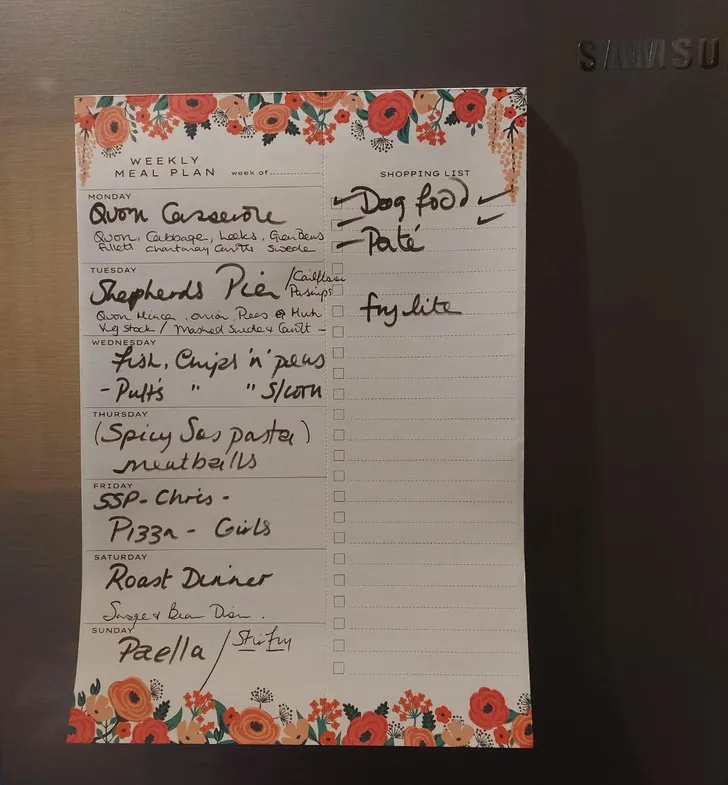 SAMSU
WEEKLY
MEAL PLAN week of
MONDAY
Quorn Casserole
Quorn, Cabbage, Leeks, Green Beans
Fillets Chantanay Carrotts Swede
TUESDAY
Shepherds Pie / Cauliflower
Parsnips
Quorn Mince, onion, Peas & Mush
Veg Stock / Mashed Swede & Carrott -
WEDNESDAY
Fish, Chips 'n' peas
- Puff's " " S/corn
THURSDAY
(Spicy Sos pasta)
meatballs
FRIDAY
SSP - Chris -
Pizza - Girls
SATURDAY
Roast Dinner
& Bean
SUNDAY
Paella / Stir Fry
SHOPPING LIST
Dog food
Paté
fry lite